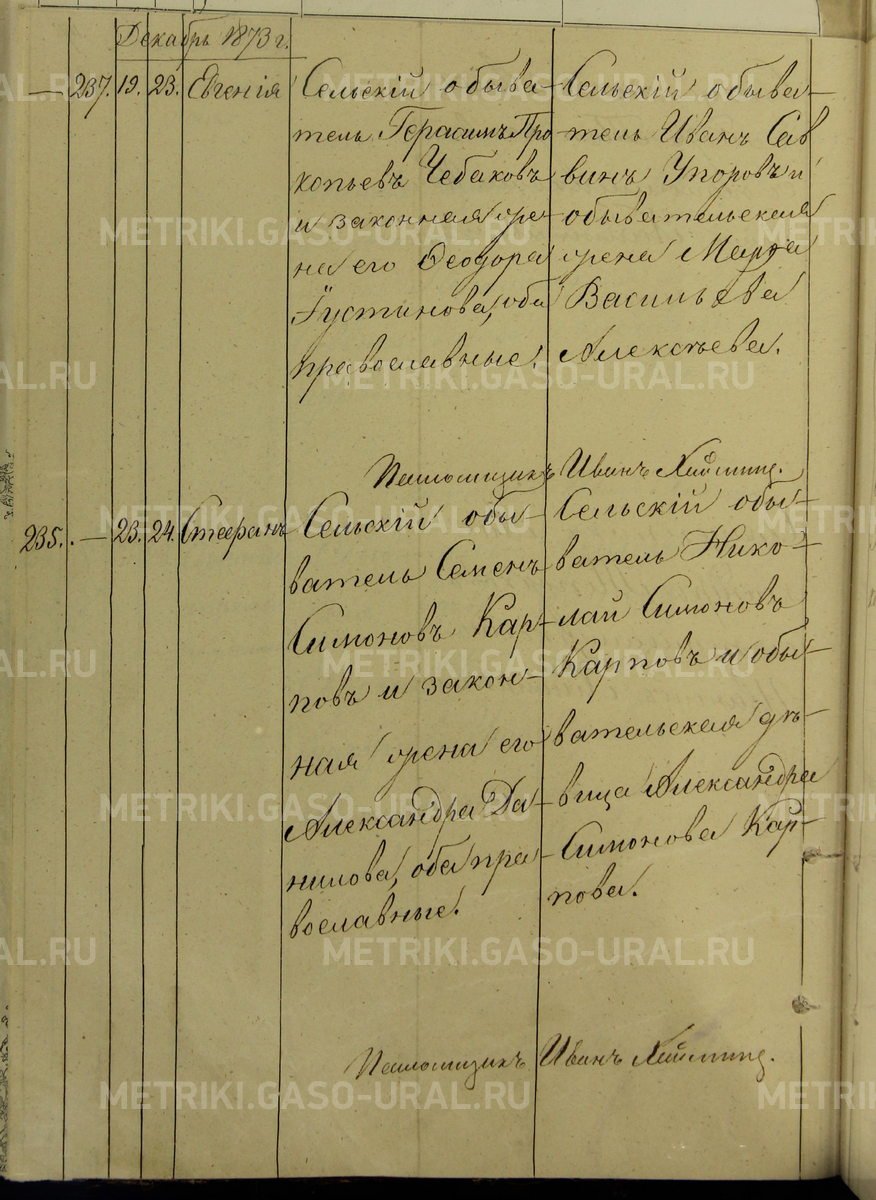 Декабрь 1873 г.
— 237. 19. 23. Евгенія
Сельскій обыва-
тель Герасимъ Про-
копьевъ Чебаковъ
и законная же-
на его Ѳеодора
Іустинова, оба
православные.
Сельскій обыва-
тель Иванъ Сав
винъ Упоровъ и
обывательская
жена Марѳа
Васильева
Алексѣева.
Псаломщикъ Иванъ
235. — 23. 24. Стефанъ
Сельскій обы-
ватель Семенъ
Симоновъ Кар-
повъ и закон-
ная жена его
Александра Да-
нилова, оба пра-
вославные.
Сельскій обы-
ватель Нико-
лай Симоновъ
Карповъ и обы-
вательская дѣ-
вица Александра
Симонова Кар-
пова.
Псаломщикъ Иванъ
METRIKI.GASO-URAL.RU